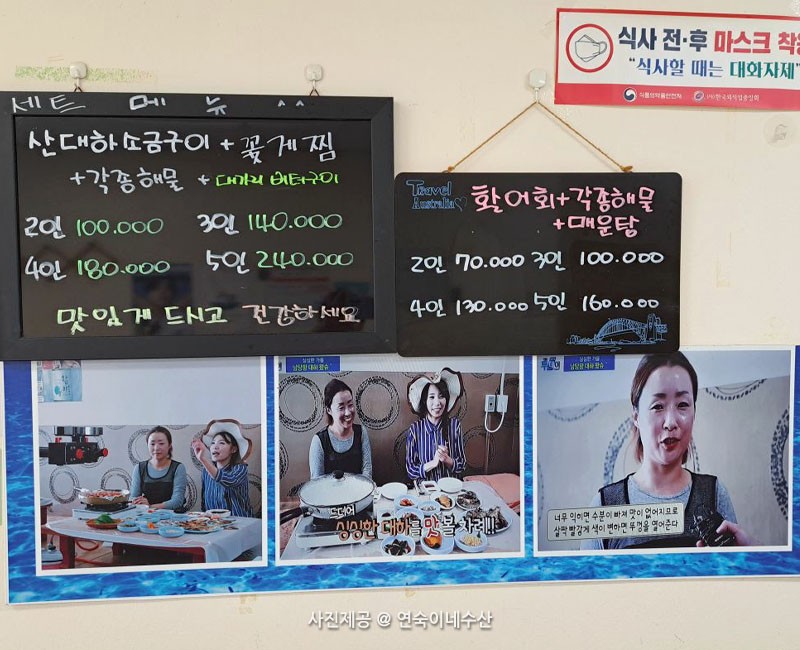 식사 전·후 마스크 착
"식사할 때는 대화자제"
식품의약품안전처
세트 메뉴 ^^
산대하소금구이 + 꽃게찜
+각종해물 + 대가리버터구이
2인 100.000 3인 140.000
4인 180.000 5인 240.000
맛있게 드시고 건강하세요
Travel
Australia
활어회+각종해물
+매운탕
2인 70.000 3인 100.000
4인 130.000 5인 160.000
싱싱한 가을
남당항 대하 향수
드디어
싱싱한 대하를 맛 볼 차례!!
싱싱한 가을
남당항 대하 향수
너무 익히면 수분이 빠져 맛이 없어지므로
살짝 빨갛게 색이 변하면 뚜껑을 열어준다
사진제공 @ 연숙이네수산